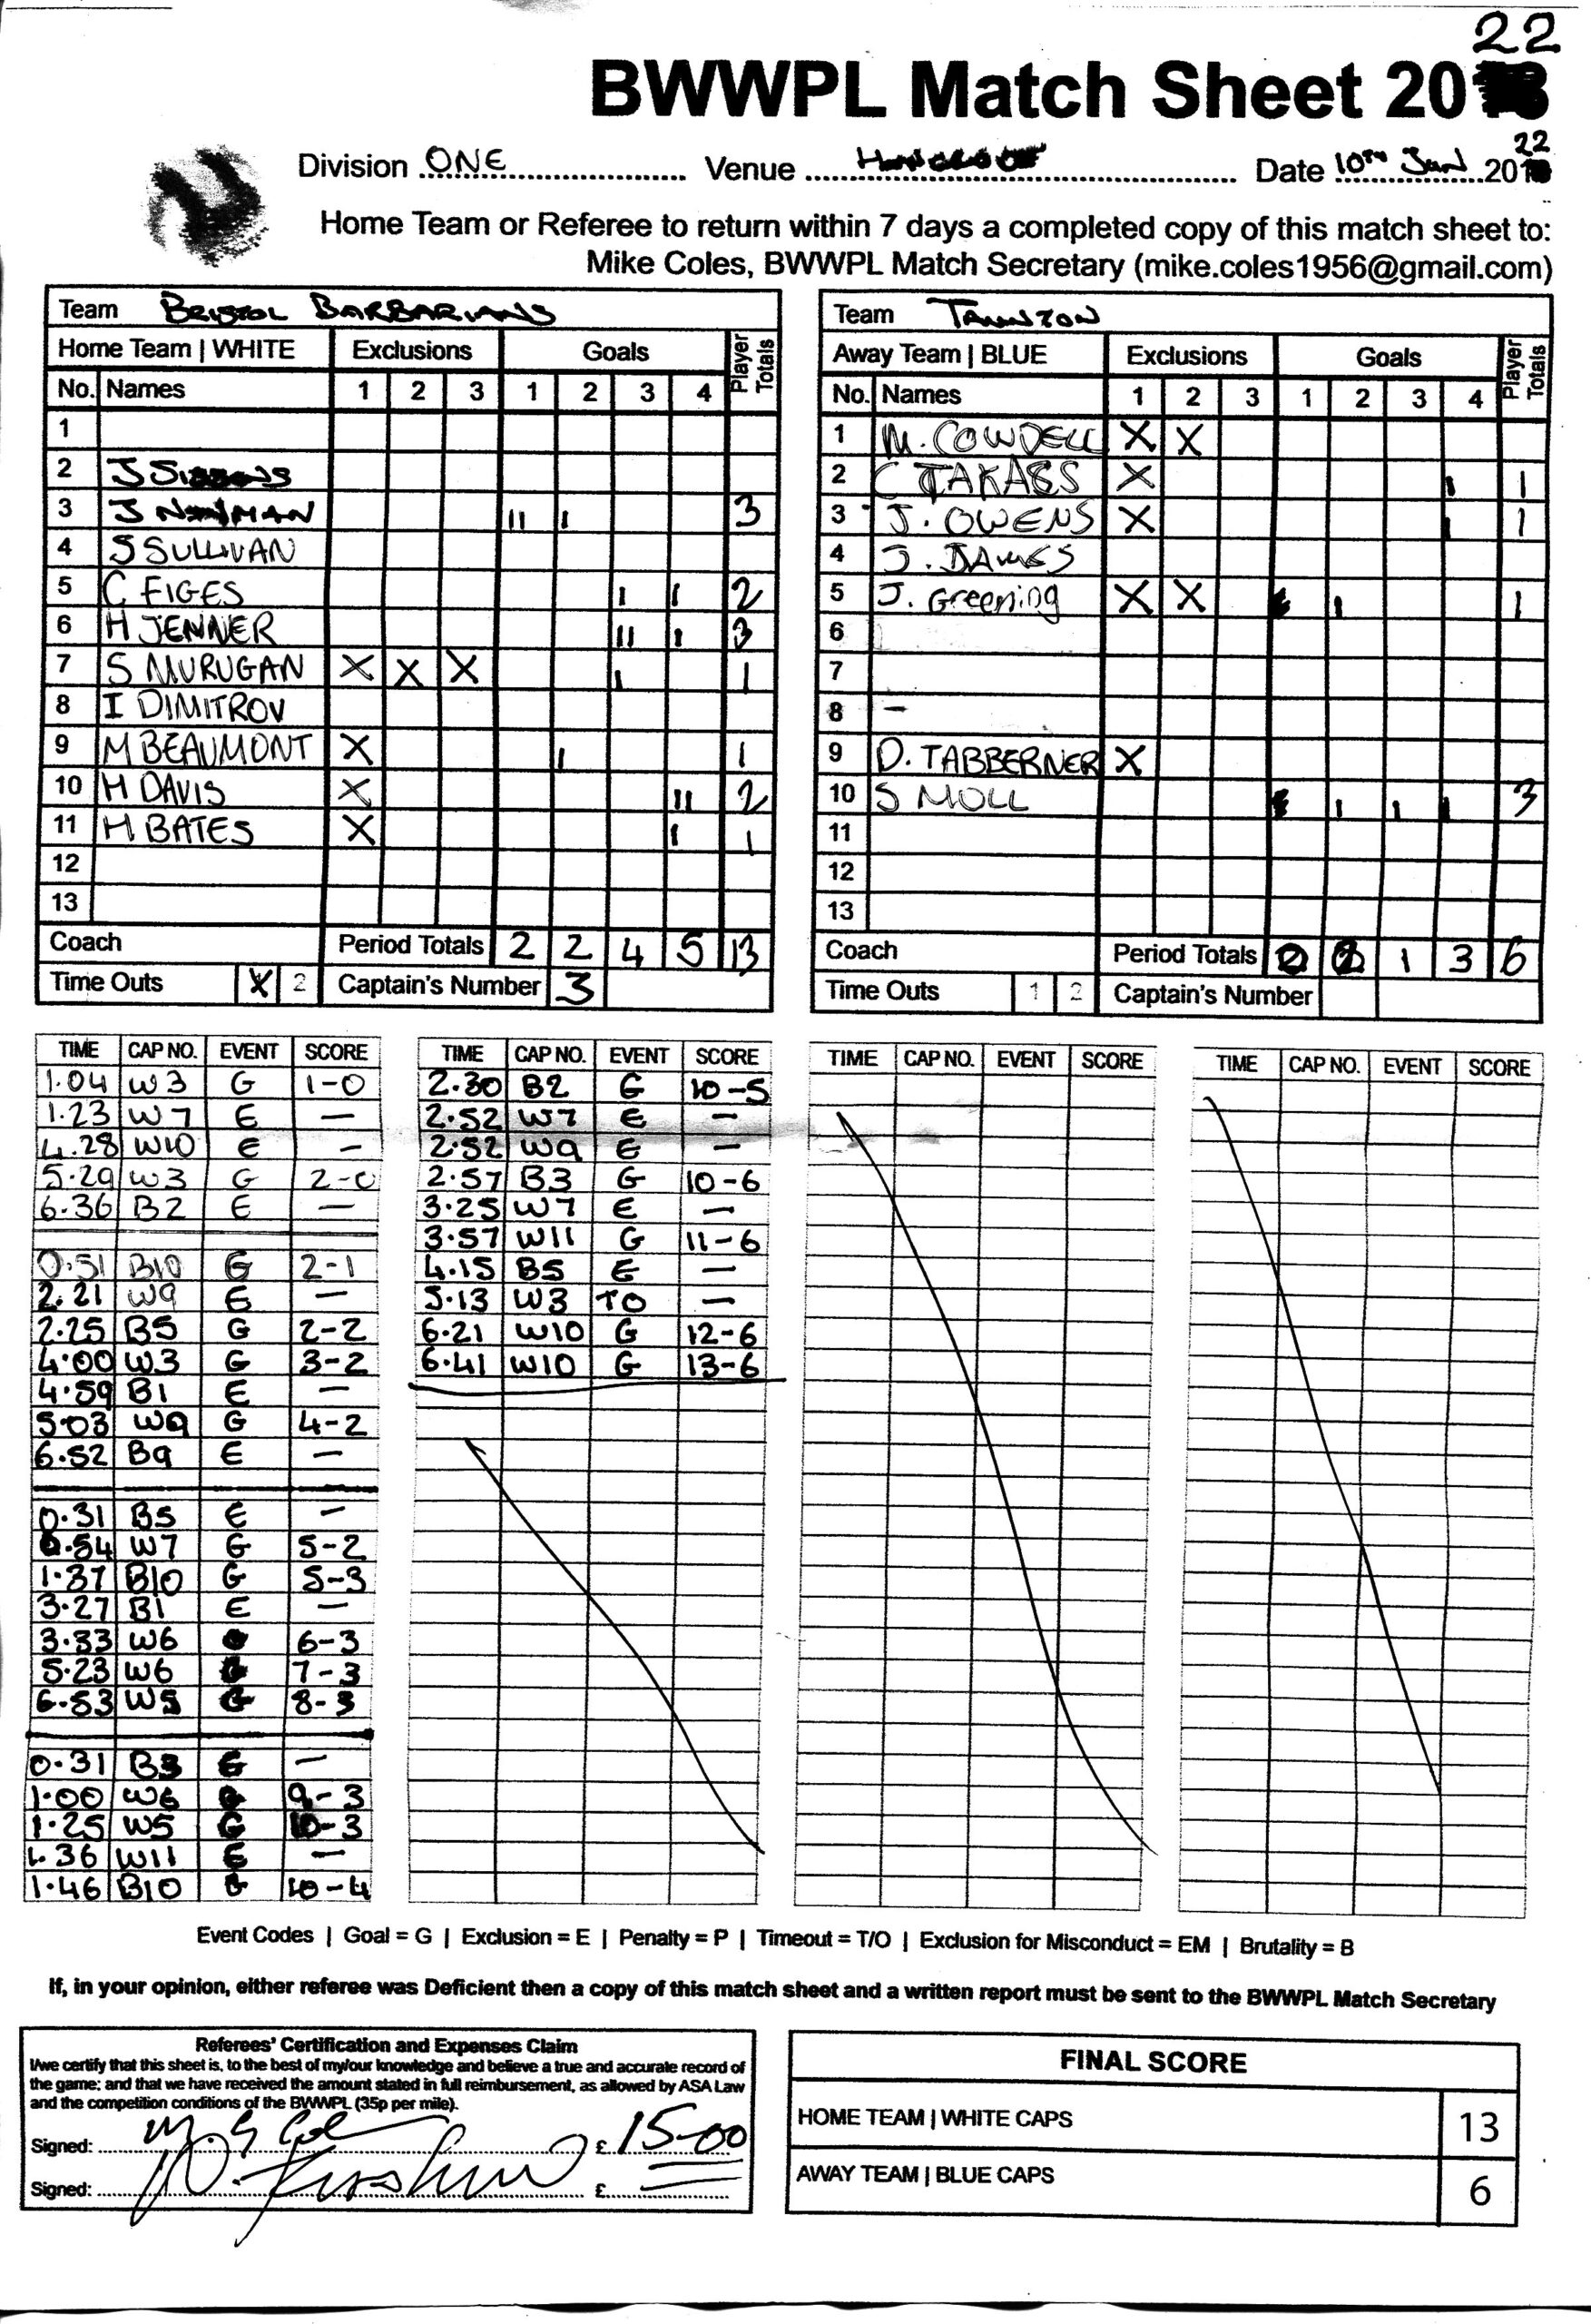 22
BWWPL Match Sheet 20
Division ONE Venue Date 10th Jun 2022
Home Team or Referee to return within 7 days a completed copy of this match sheet to:
Mike Coles, BWWPL Match Secretary (mike.coles1956@gmail.com)
Team BRISTOL BARBARIANS
Home Team | WHITE Exclusions Goals Player Totals
No. Names 1 2 3 1 2 3 4
1
2 J
3 J 11 1 3
4 S SULLIVAN
5 C FIGES 1 1 2
6 H JENNER 11 1 3
7 S MURUGAN X X X 1 1
8 I DIMITROV
9 M BEAUMONT X 1 1
10 H DAVIS X 11 2
11 H BATES X 1 1
12
13
Coach Period Totals 2 2 4 5 13
Time Outs X 2 Captain's Number 3
Team TAUNTON
Away Team | BLUE Exclusions Goals Player Totals
No. Names 1 2 3 1 2 3 4
1 M. COWDELL X X
2 C TAKACS X 1 1
3 J. OWENS X 1 1
4 J. JAMES
5 J. Greening X X 1 1
6
7
8 -
9 D. TABBERNER X
10 S MOLL 1 1 1 3
11
12
13
Coach Period Totals 0 2 1 3 6
Time Outs 1 2 Captain's Number
TIME CAP NO. EVENT SCORE
1.04 W3 G 1-0
1.23 W7 E —
4.28 W10 E —
5.29 W3 G 2-0
6.36 B2 E —
0.51 B10 G 2-1
2.21 W9 E —
2.25 B5 G 2-2
4.00 W3 G 3-2
4.59 B1 E —
5.03 W9 G 4-2
6.52 B9 E —
0.31 B5 E —
0.54 W7 G 5-2
1.37 B10 G 5-3
3.27 B1 E —
3.33 W6 6-3
5.23 W6 G 7-3
6.53 W5 G 8-3
0.31 B3 E —
1.00 W6 G 9-3
1.25 W5 G 10-3
1.36 W11 E —
1.46 B10 G 10-4
TIME CAP NO. EVENT SCORE
2.30 B2 G 10-5
2.52 W7 E —
2.52 W9 E —
2.57 B3 G 10-6
3.25 W7 E —
3.57 W11 G 11-6
4.15 B5 E —
5.13 W3 TO —
6.21 W10 G 12-6
6.41 W10 G 13-6
TIME CAP NO. EVENT SCORE
TIME CAP NO. EVENT SCORE
Event Codes | Goal = G | Exclusion = E | Penalty = P | Timeout = T/O | Exclusion for Misconduct = EM | Brutality = B
If, in your opinion, either referee was Deficient then a copy of this match sheet and a written report must be sent to the BWWPL Match Secretary
Referees' Certification and Expenses Claim
I/we certify that this sheet is, to the best of my/our knowledge and believe a true and accurate record of
the game; and that we have received the amount stated in full reimbursement, as allowed by ASA Law
and the competition conditions of the BWWPL (35p per mile).
Signed: £ 15-00
Signed: £ —
FINAL SCORE
HOME TEAM | WHITE CAPS 13
AWAY TEAM | BLUE CAPS 6